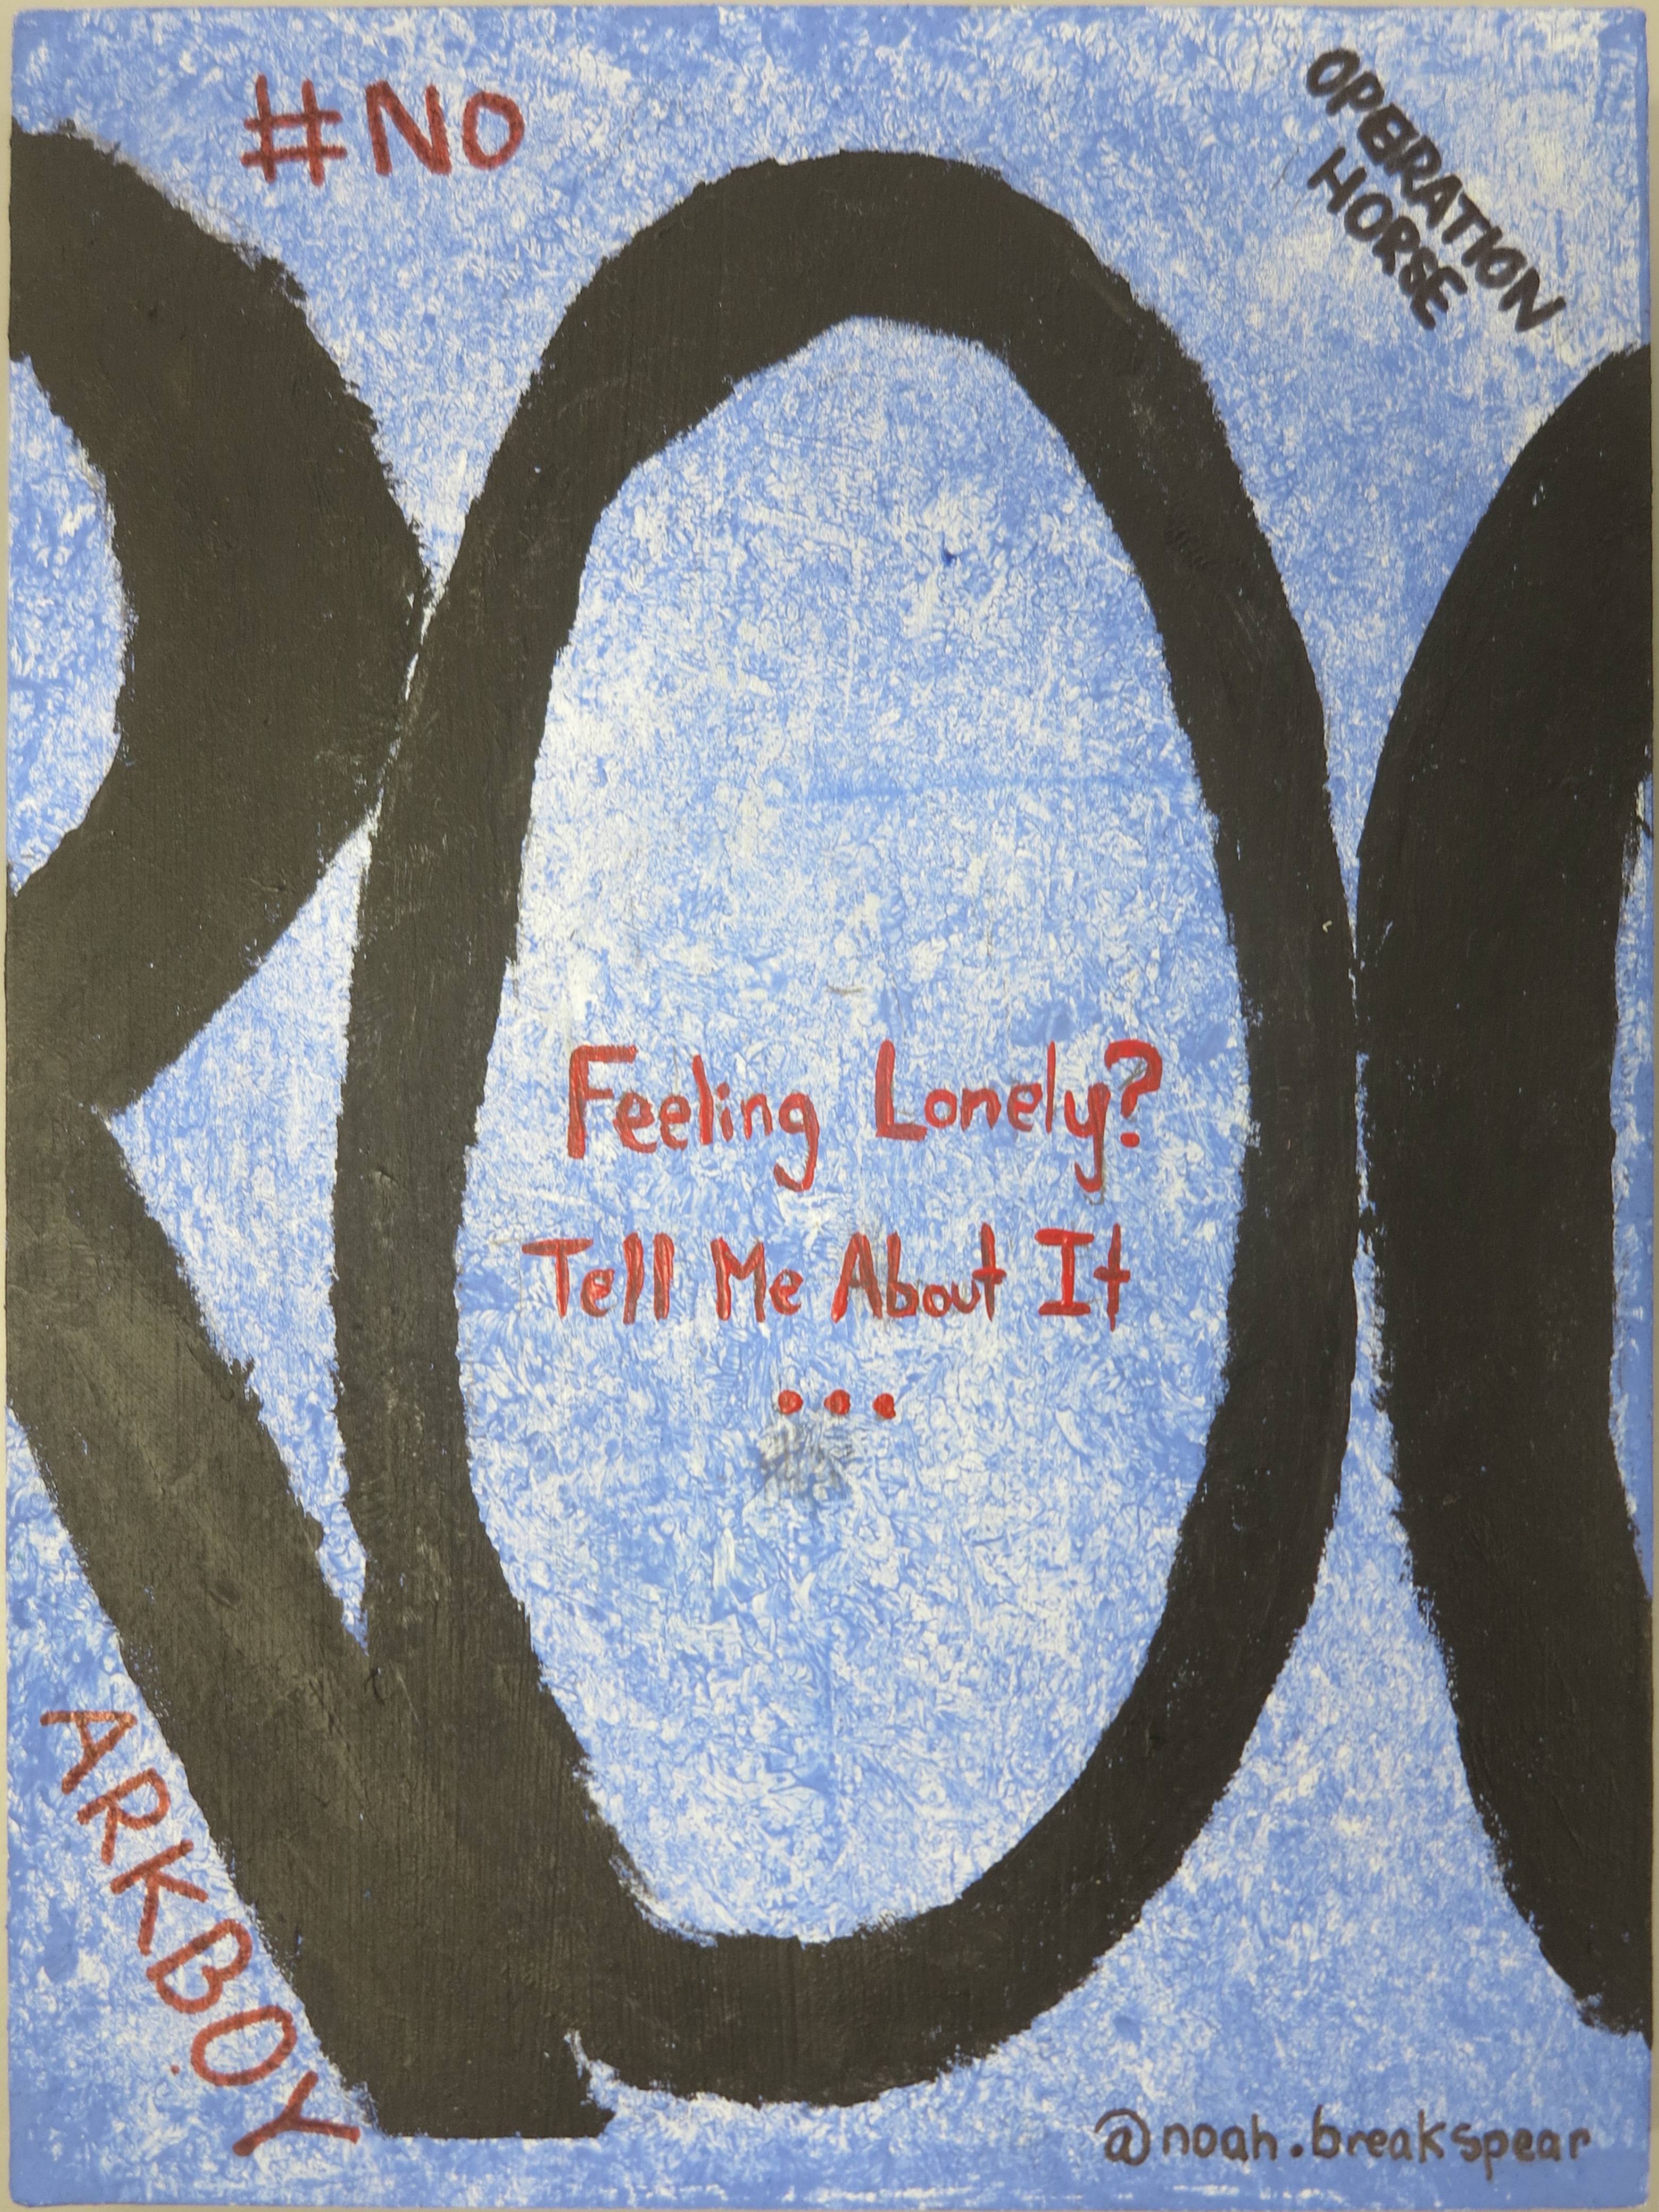 #NO
OPERATION
HORSE
Feeling Lonely?
Tell Me About It
...
ARKBOY
@noah.breakspear